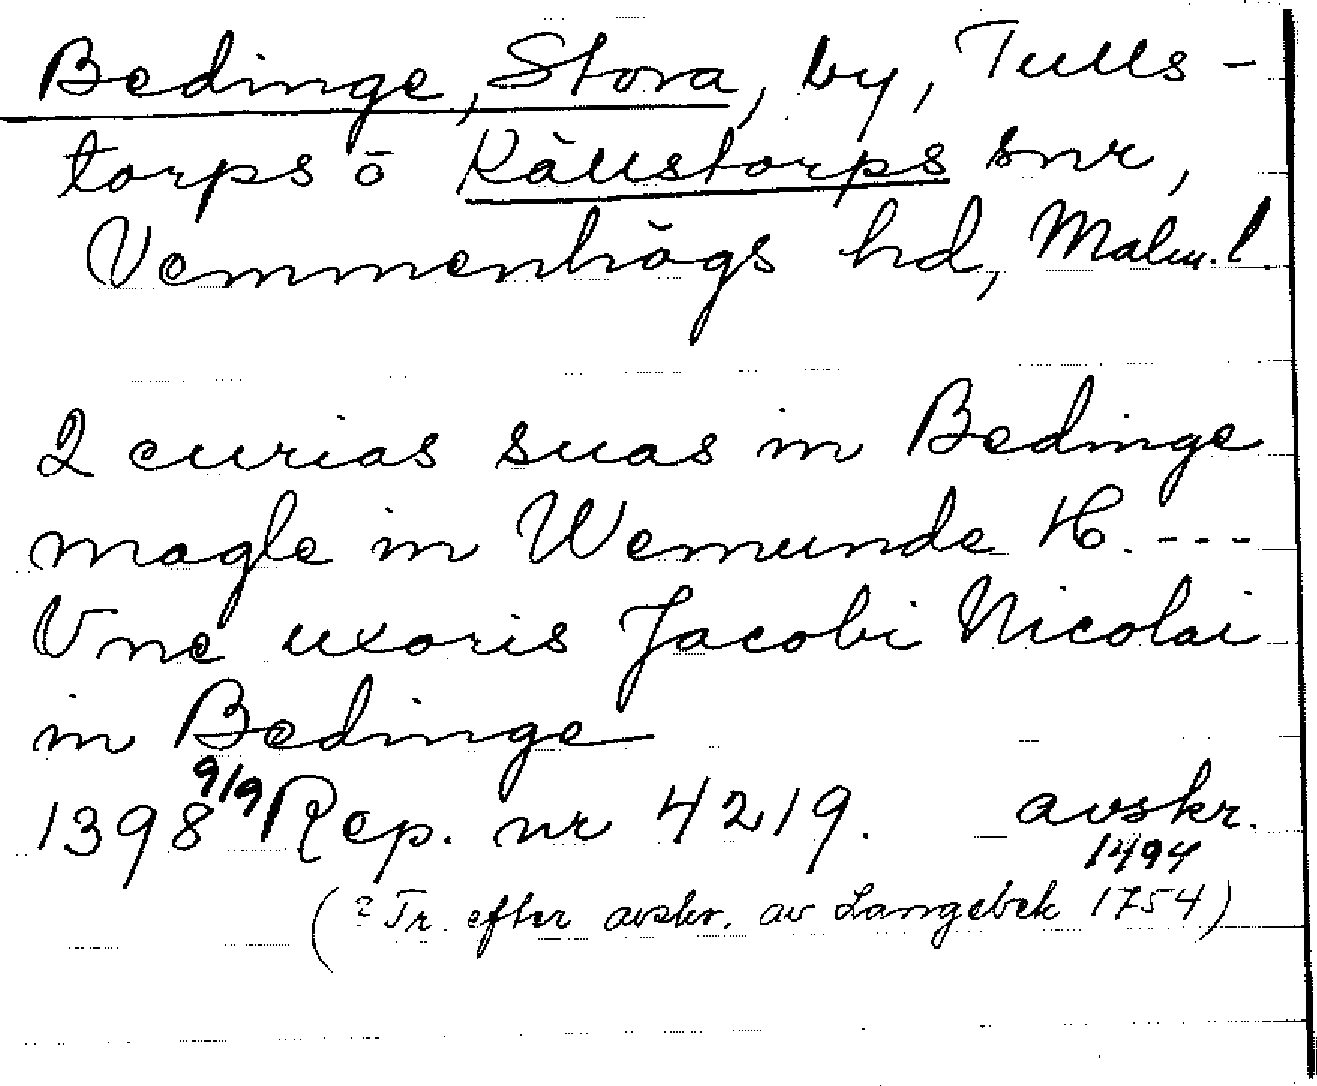 Bedinge, Stora, by, Tulls-
torps o Källstorps snr,
Vemmenhögs hd, Malm. l.
2 curias suas in Bedinge
magle in Wemunde H. ---
Vne uxoris Jacobi Nicolai
in Bedinge
1398 9/9 Rep. nr 4219. avskr.
1494
(? Tr. efter avskr. av Langebek 1754)